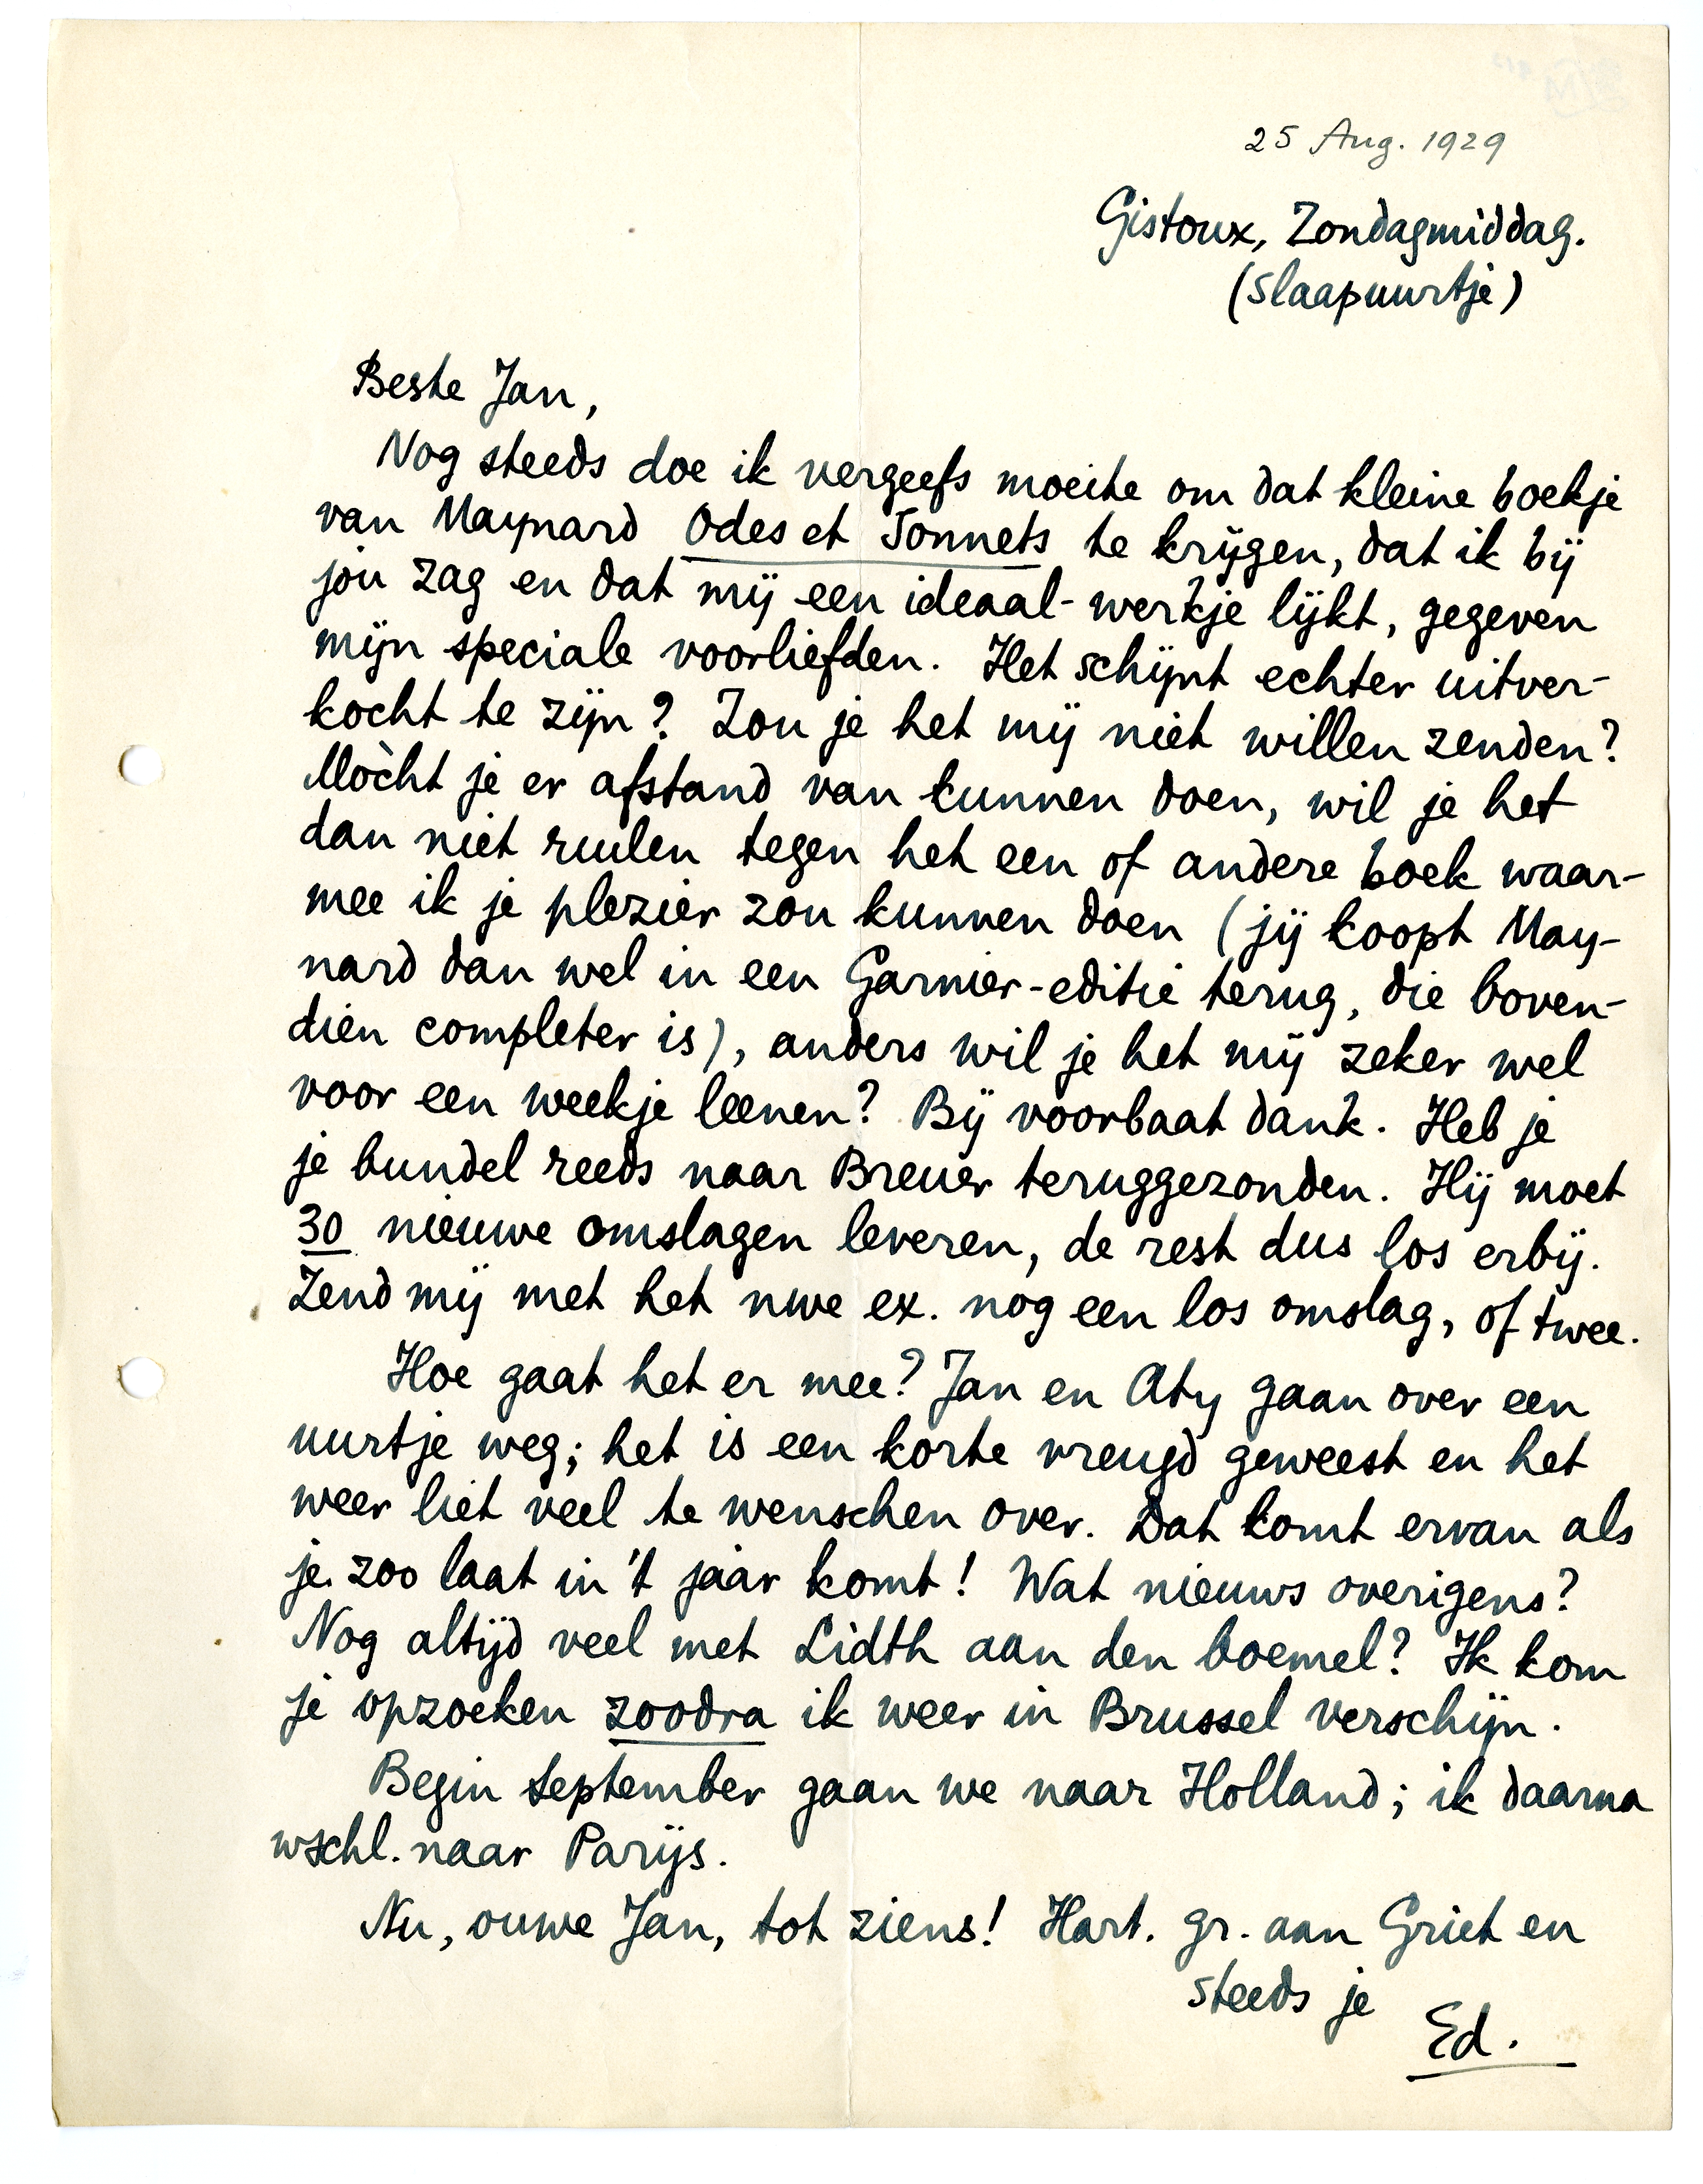 25 Aug. 1929
Gistoux, Zondagmiddag.
(slaapuurtje)
Beste Jan,
Nog steeds doe ik vergeefs moeite om dat kleine boekje
van Maynard Odes et Sonnets te krijgen, dat ik bij
jou zag en dat mij een ideaal-werkje lijkt, gegeven
mijn speciale voorliefden. Het schijnt echter uitver-
kocht te zijn? Zou je het mij niet willen zenden?
Mòcht je er afstand van kunnen doen, wil je het
dan niet ruilen tegen het een of andere boek waar-
mee ik je plezier zou kunnen doen (jij koopt May-
nard dan wel in een Garnier-editie terug, die boven-
dien completer is), anders wil je het mij zeker wel
voor een weekje leenen? Bij voorbaat dank. Heb je
je bundel reeds naar Breuer teruggezonden. Hij moet
30 nieuwe omslagen leveren, de rest dus los erbij.
Zend mij met het nwe ex. nog een los omslag, of twee.
Hoe gaat het er mee? Jan en Aty gaan over een
uurtje weg; het is een korte vreugd geweest en het
weer liet veel te wenschen over. Dat komt ervan als
je zoo laat in 't jaar komt! Wat nieuws overigens?
Nog altijd veel met Lidth aan den boemel? Ik kom
je opzoeken zoodra ik weer in Brussel verschijn.
Begin September gaan we naar Holland; ik daarna
wschl. naar Parijs.
Nu, ouwe Jan, tot ziens! Hart. gr. aan Griet en
steeds je
Ed.